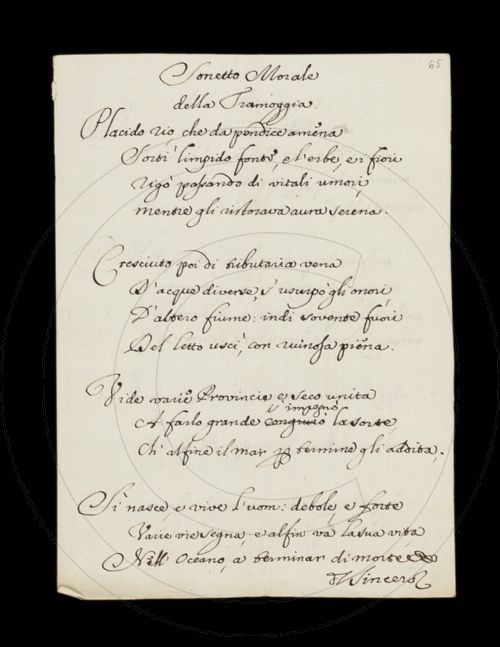 65
Sonetto Morale
della Tramoggia.
Placido rio, che da pendice amena
Sortì limpido fonte, e l'erbe, e i fiori
Rigò passando di vitali umori,
mentre gli ristorava aura serena.
Cresciuto poi di tributaria vena
D'acque diverse, s'usurpò gli onori
D'altero fiume: indi sovente fuori
Del letto uscì, con ruinosa piena.
Vide varie Provincie e seco unita
s'impegnò
A farlo grande congiurò la sorte,
Ch'alfine il mar per termine gli addita,
Sì nasce e vive l'uom: debole, e forte
Varie vie segna, e alfin va la sua vita
Nell'Oceano, a terminar di morte
Il Sincero